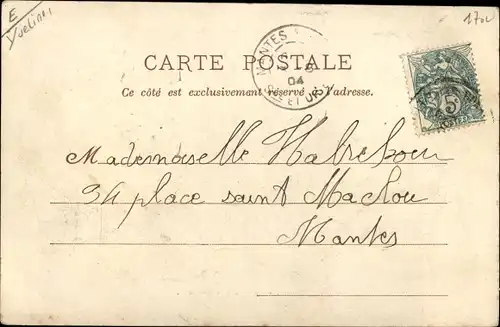 E
Yvelines
170
MANTES
04
5
CARTE POSTALE
Ce côté est exclusivement réservé à l'adresse.
Mademoiselle
34 place saint Maclou
Mantes